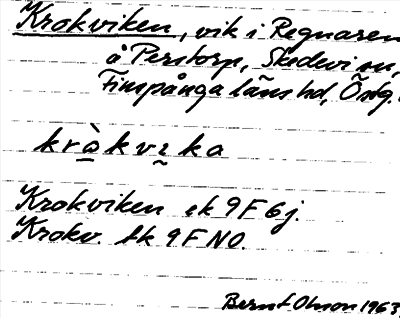 Krokviken, vik i Regnaren
å Perstorp, Skedevi sn,
Finspånga läns hd, Östg.
kråkvika
Krokviken ek 9F 6j.
Krokv. tk 9F NO.
Bernt Olson 1963